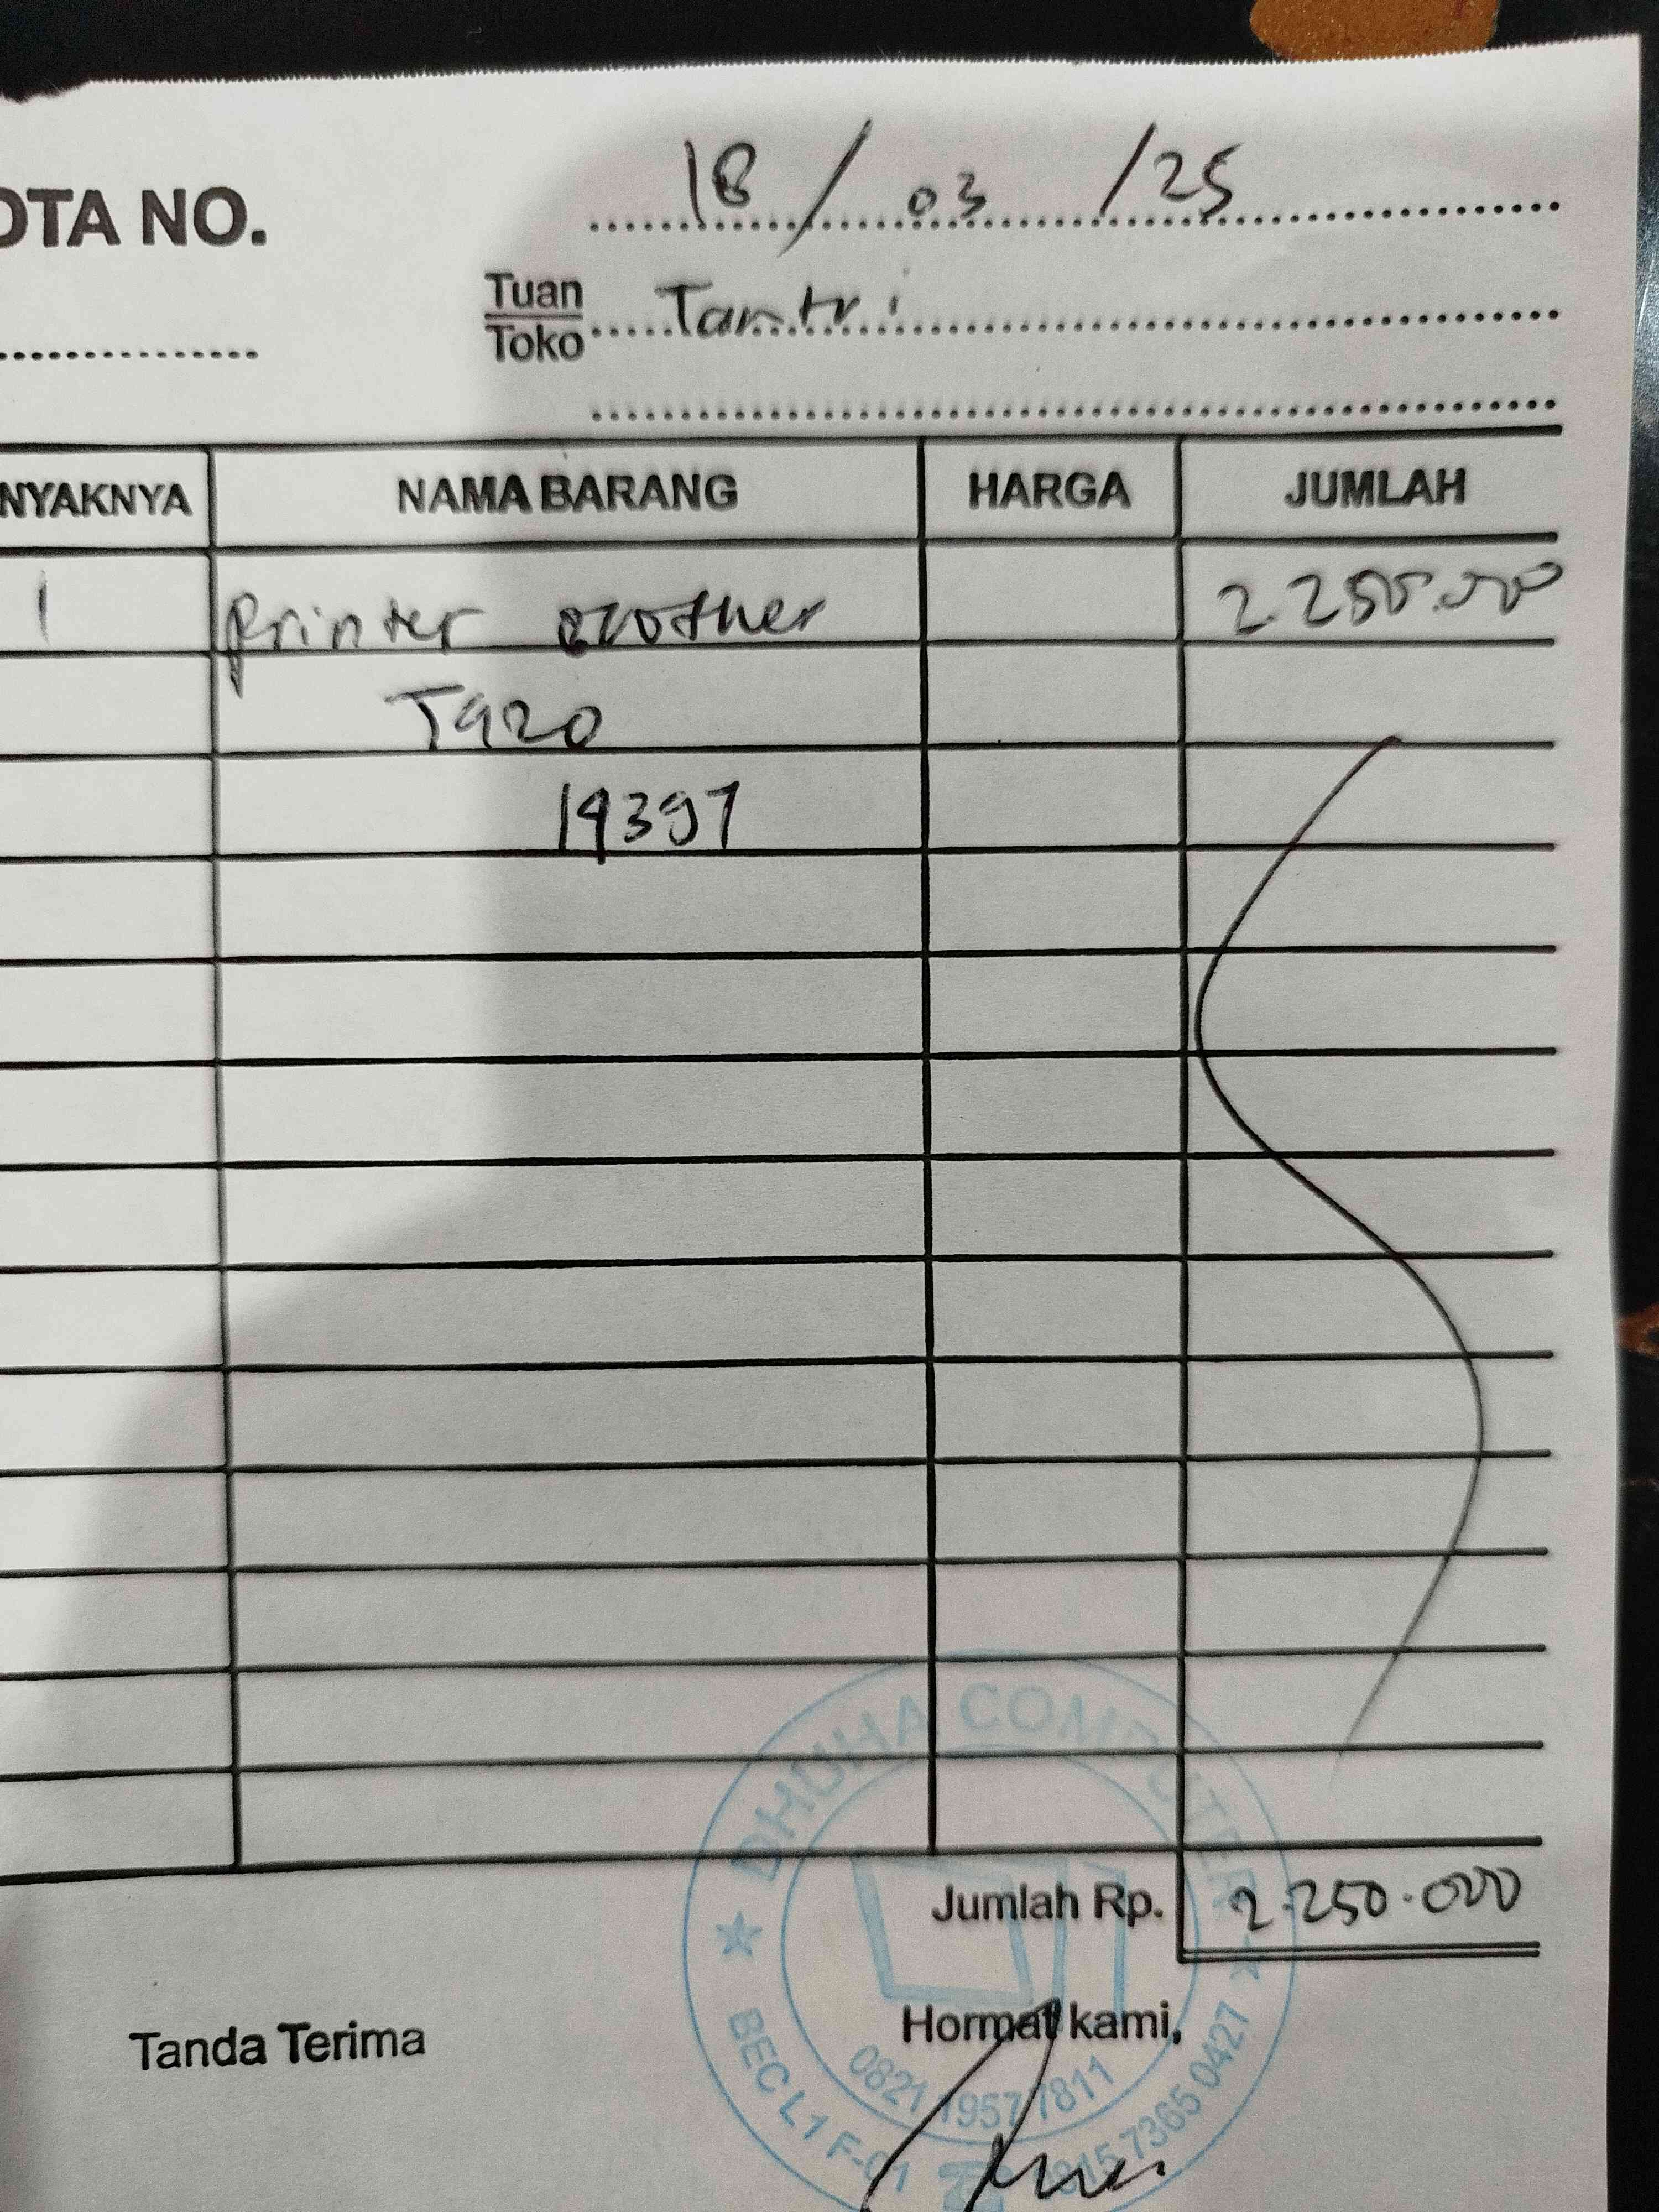 OTA NO.
18 / 03 / 25
Tuan
Toko
Tantri
NYAKNYA NAMA BARANG HARGA JUMLAH
1 Printer Brother 2.250.000
T920
14397
Jumlah Rp. 2.250.000
Tanda Terima
Hormat kami,
DHUHA COMPUTER
0821 1957 7811
BEC L1 F-01
0815 7365 0427